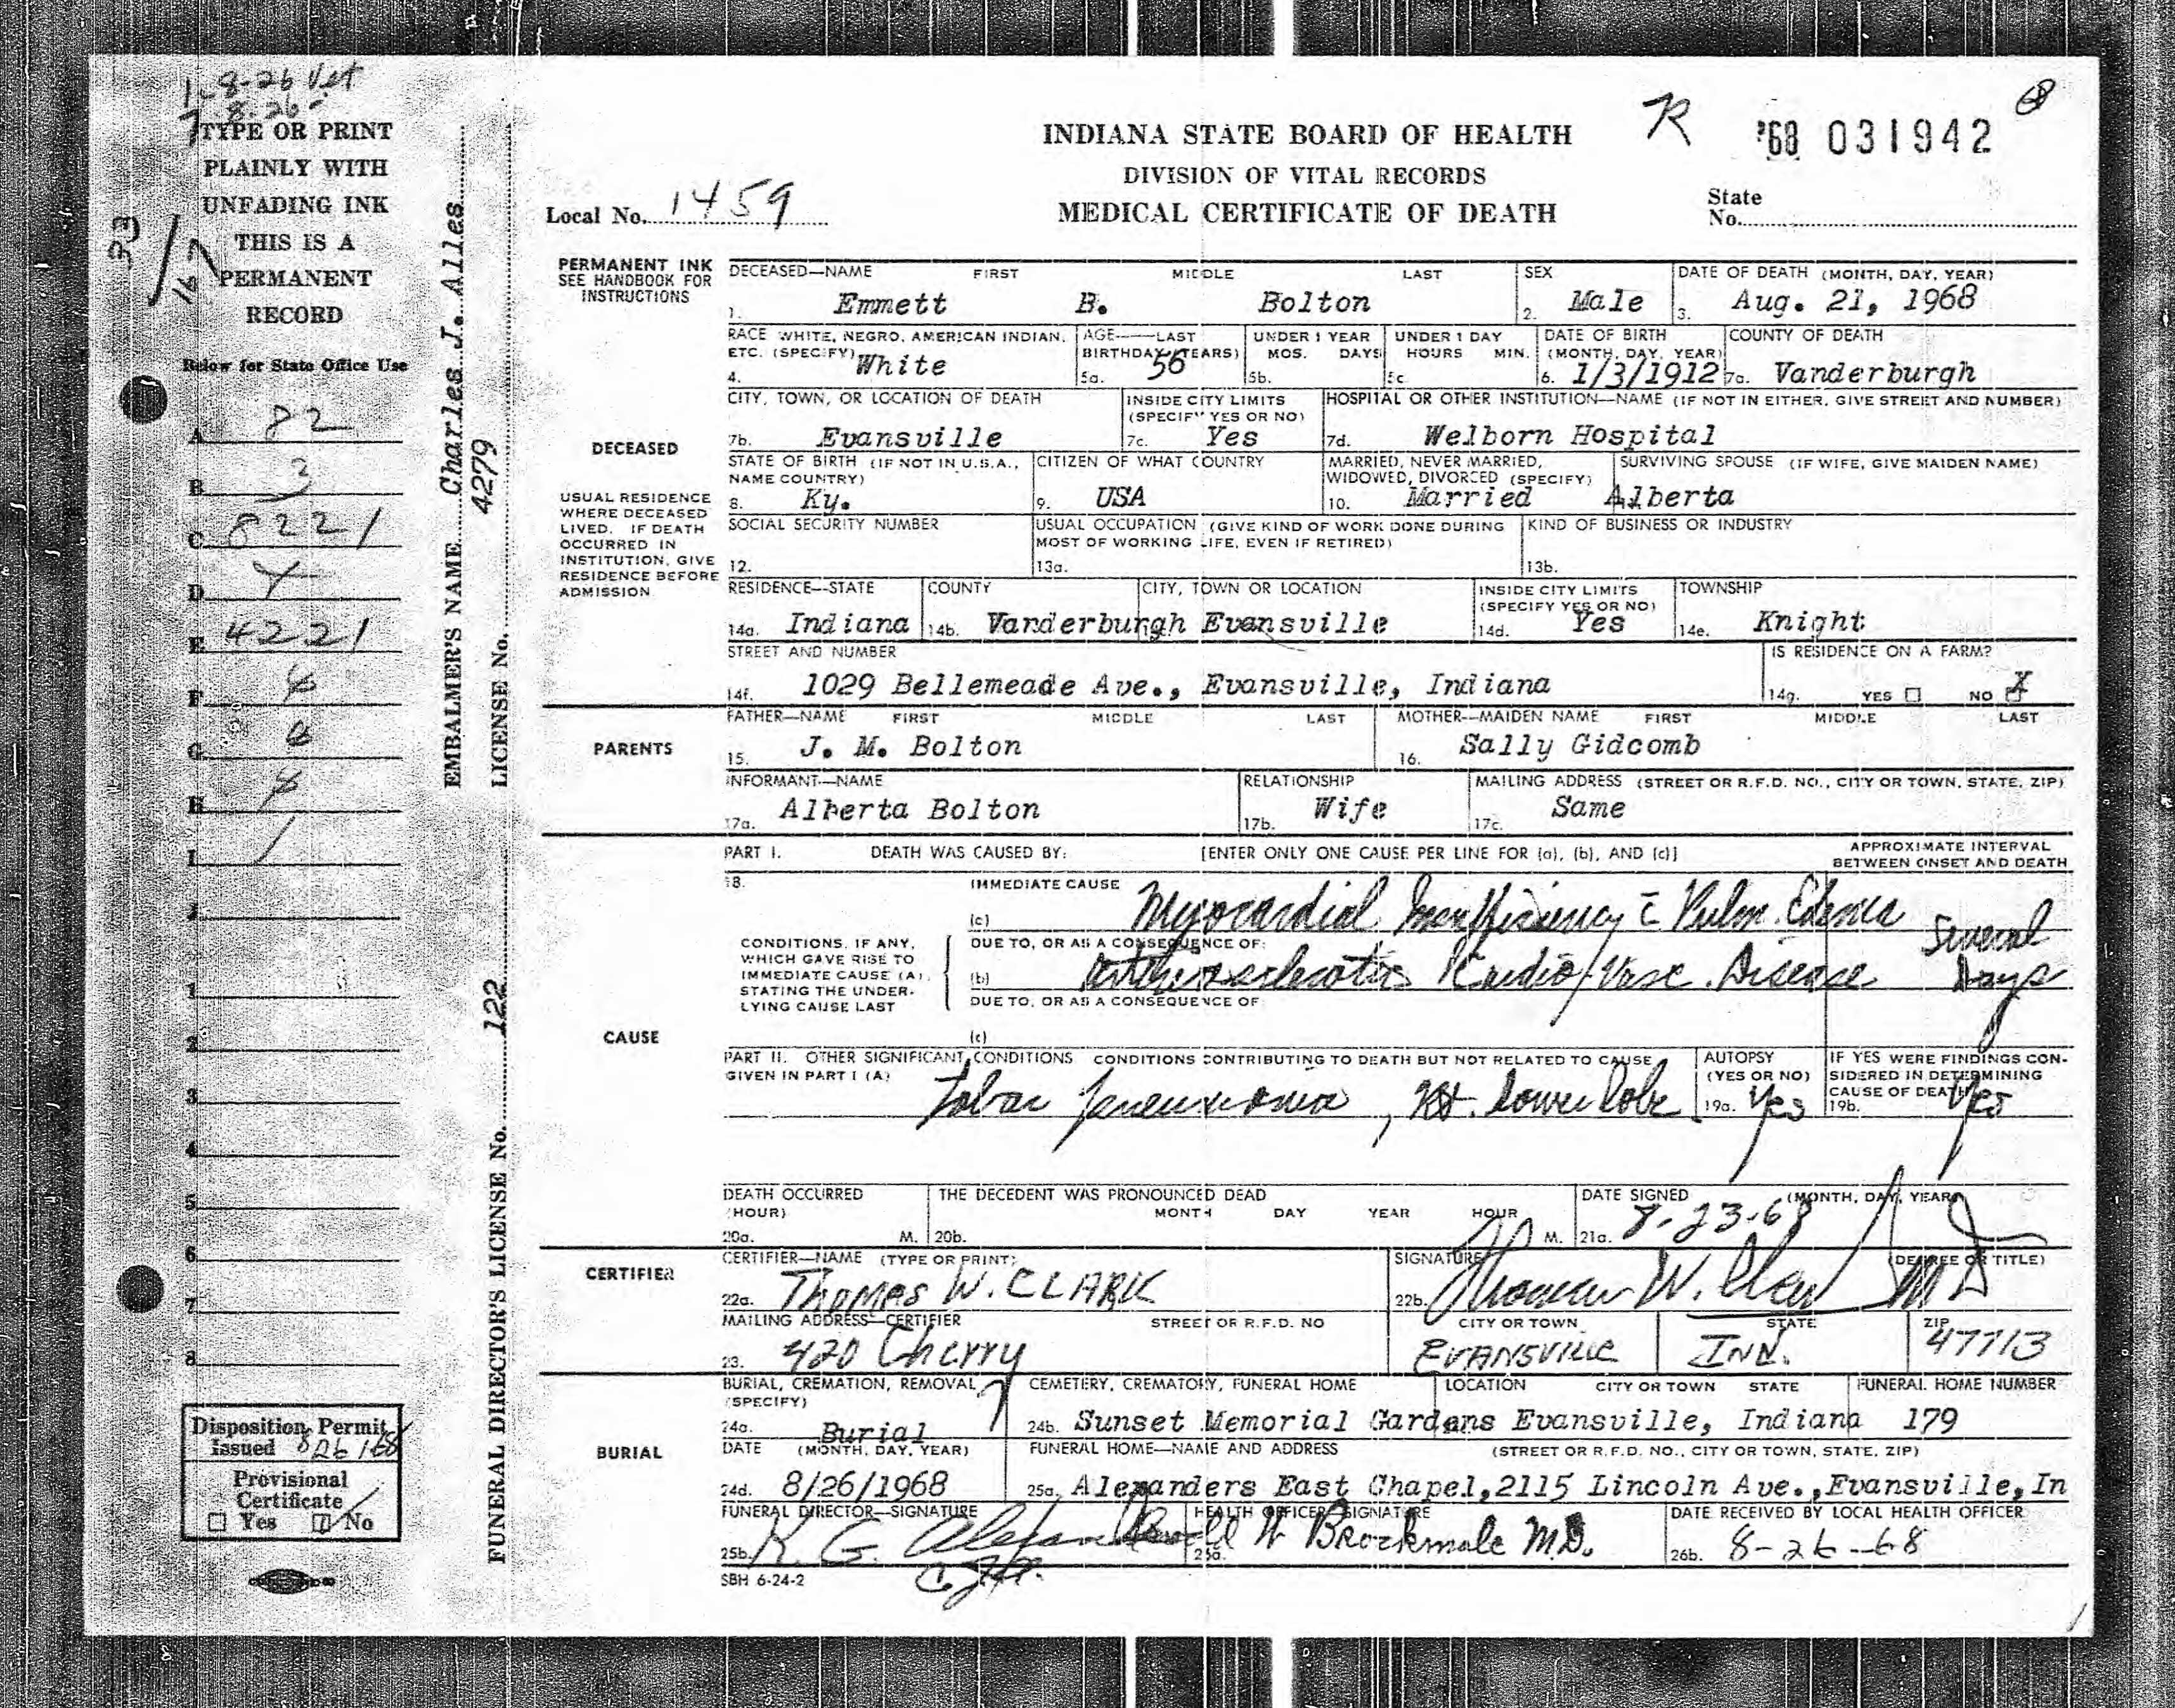 1-8-26 Vet
7 8-26-
TYPE OR PRINT
PLAINLY WITH
UNFADING INK
THIS IS A
PERMANENT
RECORD
33/167
Below for State Office Use
A 82
B 3
C 8221
D Y
E 4221
F
G
H
I 1
1
2
3
4
5
6
7
8
Disposition Permit
Issued 8/26/68
Provisional
Certificate
Yes No
EMBALMER'S NAME Charles J. Alles
LICENSE No. 4279
FUNERAL DIRECTOR'S LICENSE No. 122
INDIANA STATE BOARD OF HEALTH
DIVISION OF VITAL RECORDS
MEDICAL CERTIFICATE OF DEATH
R '68 031942
Local No. 1459
State
No.
PERMANENT INK
SEE HANDBOOK FOR
INSTRUCTIONS
DECEASED—NAME FIRST MIDDLE LAST SEX DATE OF DEATH (MONTH, DAY, YEAR)
1. Emmett B. Bolton 2. Male 3. Aug. 21, 1968
RACE WHITE, NEGRO, AMERICAN INDIAN, AGE—LAST UNDER 1 YEAR UNDER 1 DAY DATE OF BIRTH COUNTY OF DEATH
ETC. (SPECIFY) BIRTHDAY (YEARS) MOS. DAYS HOURS MIN. (MONTH, DAY, YEAR)
4. White 5a. 56 5b. 5c 6. 1/3/1912 7a. Vanderburgh
CITY, TOWN, OR LOCATION OF DEATH INSIDE CITY LIMITS HOSPITAL OR OTHER INSTITUTION—NAME (IF NOT IN EITHER, GIVE STREET AND NUMBER)
(SPECIFY YES OR NO)
7b. Evansville 7c. Yes 7d. Welborn Hospital
DECEASED
STATE OF BIRTH (IF NOT IN U.S.A., CITIZEN OF WHAT COUNTRY MARRIED, NEVER MARRIED, SURVIVING SPOUSE (IF WIFE, GIVE MAIDEN NAME)
NAME COUNTRY) WIDOWED, DIVORCED (SPECIFY)
8. Ky. 9. USA 10. Married Alberta
USUAL RESIDENCE
WHERE DECEASED
LIVED. IF DEATH
OCCURRED IN
INSTITUTION, GIVE
RESIDENCE BEFORE
ADMISSION
SOCIAL SECURITY NUMBER USUAL OCCUPATION (GIVE KIND OF WORK DONE DURING KIND OF BUSINESS OR INDUSTRY
MOST OF WORKING LIFE, EVEN IF RETIRED)
12. 13a. 13b.
RESIDENCE—STATE COUNTY CITY, TOWN OR LOCATION INSIDE CITY LIMITS TOWNSHIP
(SPECIFY YES OR NO)
14a. Indiana 14b. Vanderburgh Evansville 14d. Yes 14e. Knight
STREET AND NUMBER IS RESIDENCE ON A FARM?
14f. 1029 Bellemeade Ave., Evansville, Indiana 14g. YES NO X
PARENTS
FATHER—NAME FIRST MIDDLE LAST MOTHER—MAIDEN NAME FIRST MIDDLE LAST
15. J. M. Bolton 16. Sally Gidcomb
INFORMANT—NAME RELATIONSHIP MAILING ADDRESS (STREET OR R.F.D. NO., CITY OR TOWN, STATE, ZIP)
17a. Alberta Bolton 17b. Wife 17c. Same
PART I. DEATH WAS CAUSED BY: [ENTER ONLY ONE CAUSE PER LINE FOR (a), (b), AND (c)] APPROXIMATE INTERVAL
BETWEEN ONSET AND DEATH
18. IMMEDIATE CAUSE
(a) Myocardial Insufficiency c̄ Pulm. Edema Several
CONDITIONS, IF ANY,
WHICH GAVE RISE TO
IMMEDIATE CAUSE (A),
STATING THE UNDER-
LYING CAUSE LAST
DUE TO, OR AS A CONSEQUENCE OF:
(b) Arteriosclerotic Cardio/Vasc. Disease Days
DUE TO, OR AS A CONSEQUENCE OF
(c)
CAUSE
PART II. OTHER SIGNIFICANT CONDITIONS CONDITIONS CONTRIBUTING TO DEATH BUT NOT RELATED TO CAUSE AUTOPSY IF YES WERE FINDINGS CON-
GIVEN IN PART I (A) (YES OR NO) SIDERED IN DETERMINING
CAUSE OF DEATH
Lobar pneumonia, Rt. Lower Lobe 19a. Yes 19b. Yes
DEATH OCCURRED THE DECEDENT WAS PRONOUNCED DEAD DATE SIGNED (MONTH, DAY, YEAR)
(HOUR) MONTH DAY YEAR HOUR
20a. M. 20b. M. 21a. 8-23-68
CERTIFIER
CERTIFIER—NAME (TYPE OR PRINT) SIGNATURE (DEGREE OR TITLE)
22a. THOMAS W. CLARK 22b. Thomas W. Clark MD
MAILING ADDRESS—CERTIFIER STREET OR R.F.D. NO CITY OR TOWN STATE ZIP
23. 420 Cherry EVANSVILLE IND. 47713
BURIAL, CREMATION, REMOVAL CEMETERY, CREMATORY, FUNERAL HOME LOCATION CITY OR TOWN STATE FUNERAL HOME NUMBER
(SPECIFY)
24a. Burial 24b. Sunset Memorial Gardens Evansville, Indiana 179
BURIAL
DATE (MONTH, DAY, YEAR) FUNERAL HOME—NAME AND ADDRESS (STREET OR R.F.D. NO., CITY OR TOWN, STATE, ZIP)
24d. 8/26/1968 25a. Alexanders East Chapel, 2115 Lincoln Ave., Evansville, In
FUNERAL DIRECTOR—SIGNATURE HEALTH OFFICER SIGNATURE DATE RECEIVED BY LOCAL HEALTH OFFICER
25b. K. G. Alexander W Brockmole M.D. 26b. 8-26-68
SBH 6-24-2